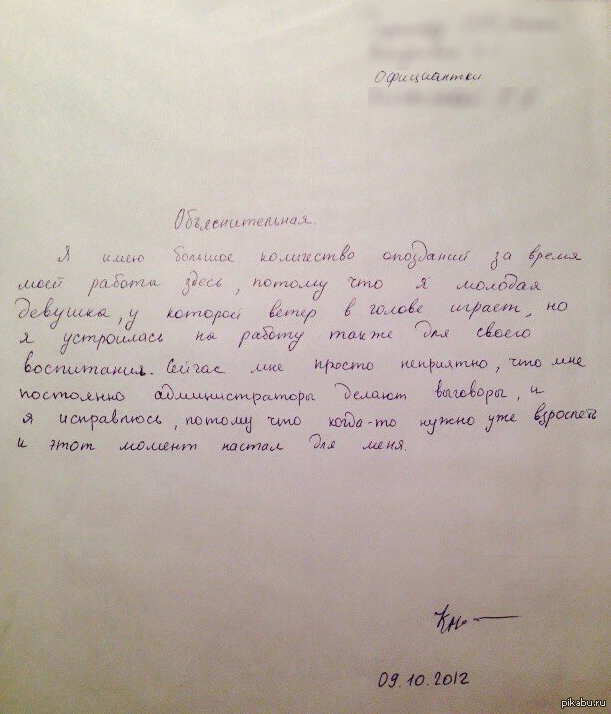 Официантки
Объяснительная.
Я имею большое количество опозданий за время
моей работы здесь, потому что я молодая
девушка, у которой ветер в голове играет, но
я устроилась на работу также для своего
воспитания. Сейчас мне просто неприятно, что мне
постоянно администраторы делают выговоры, и
я исправлюсь, потому что когда-то нужно уже взрослеть
и этот момент настал для меня.
09.10.2012
pikabu.ru